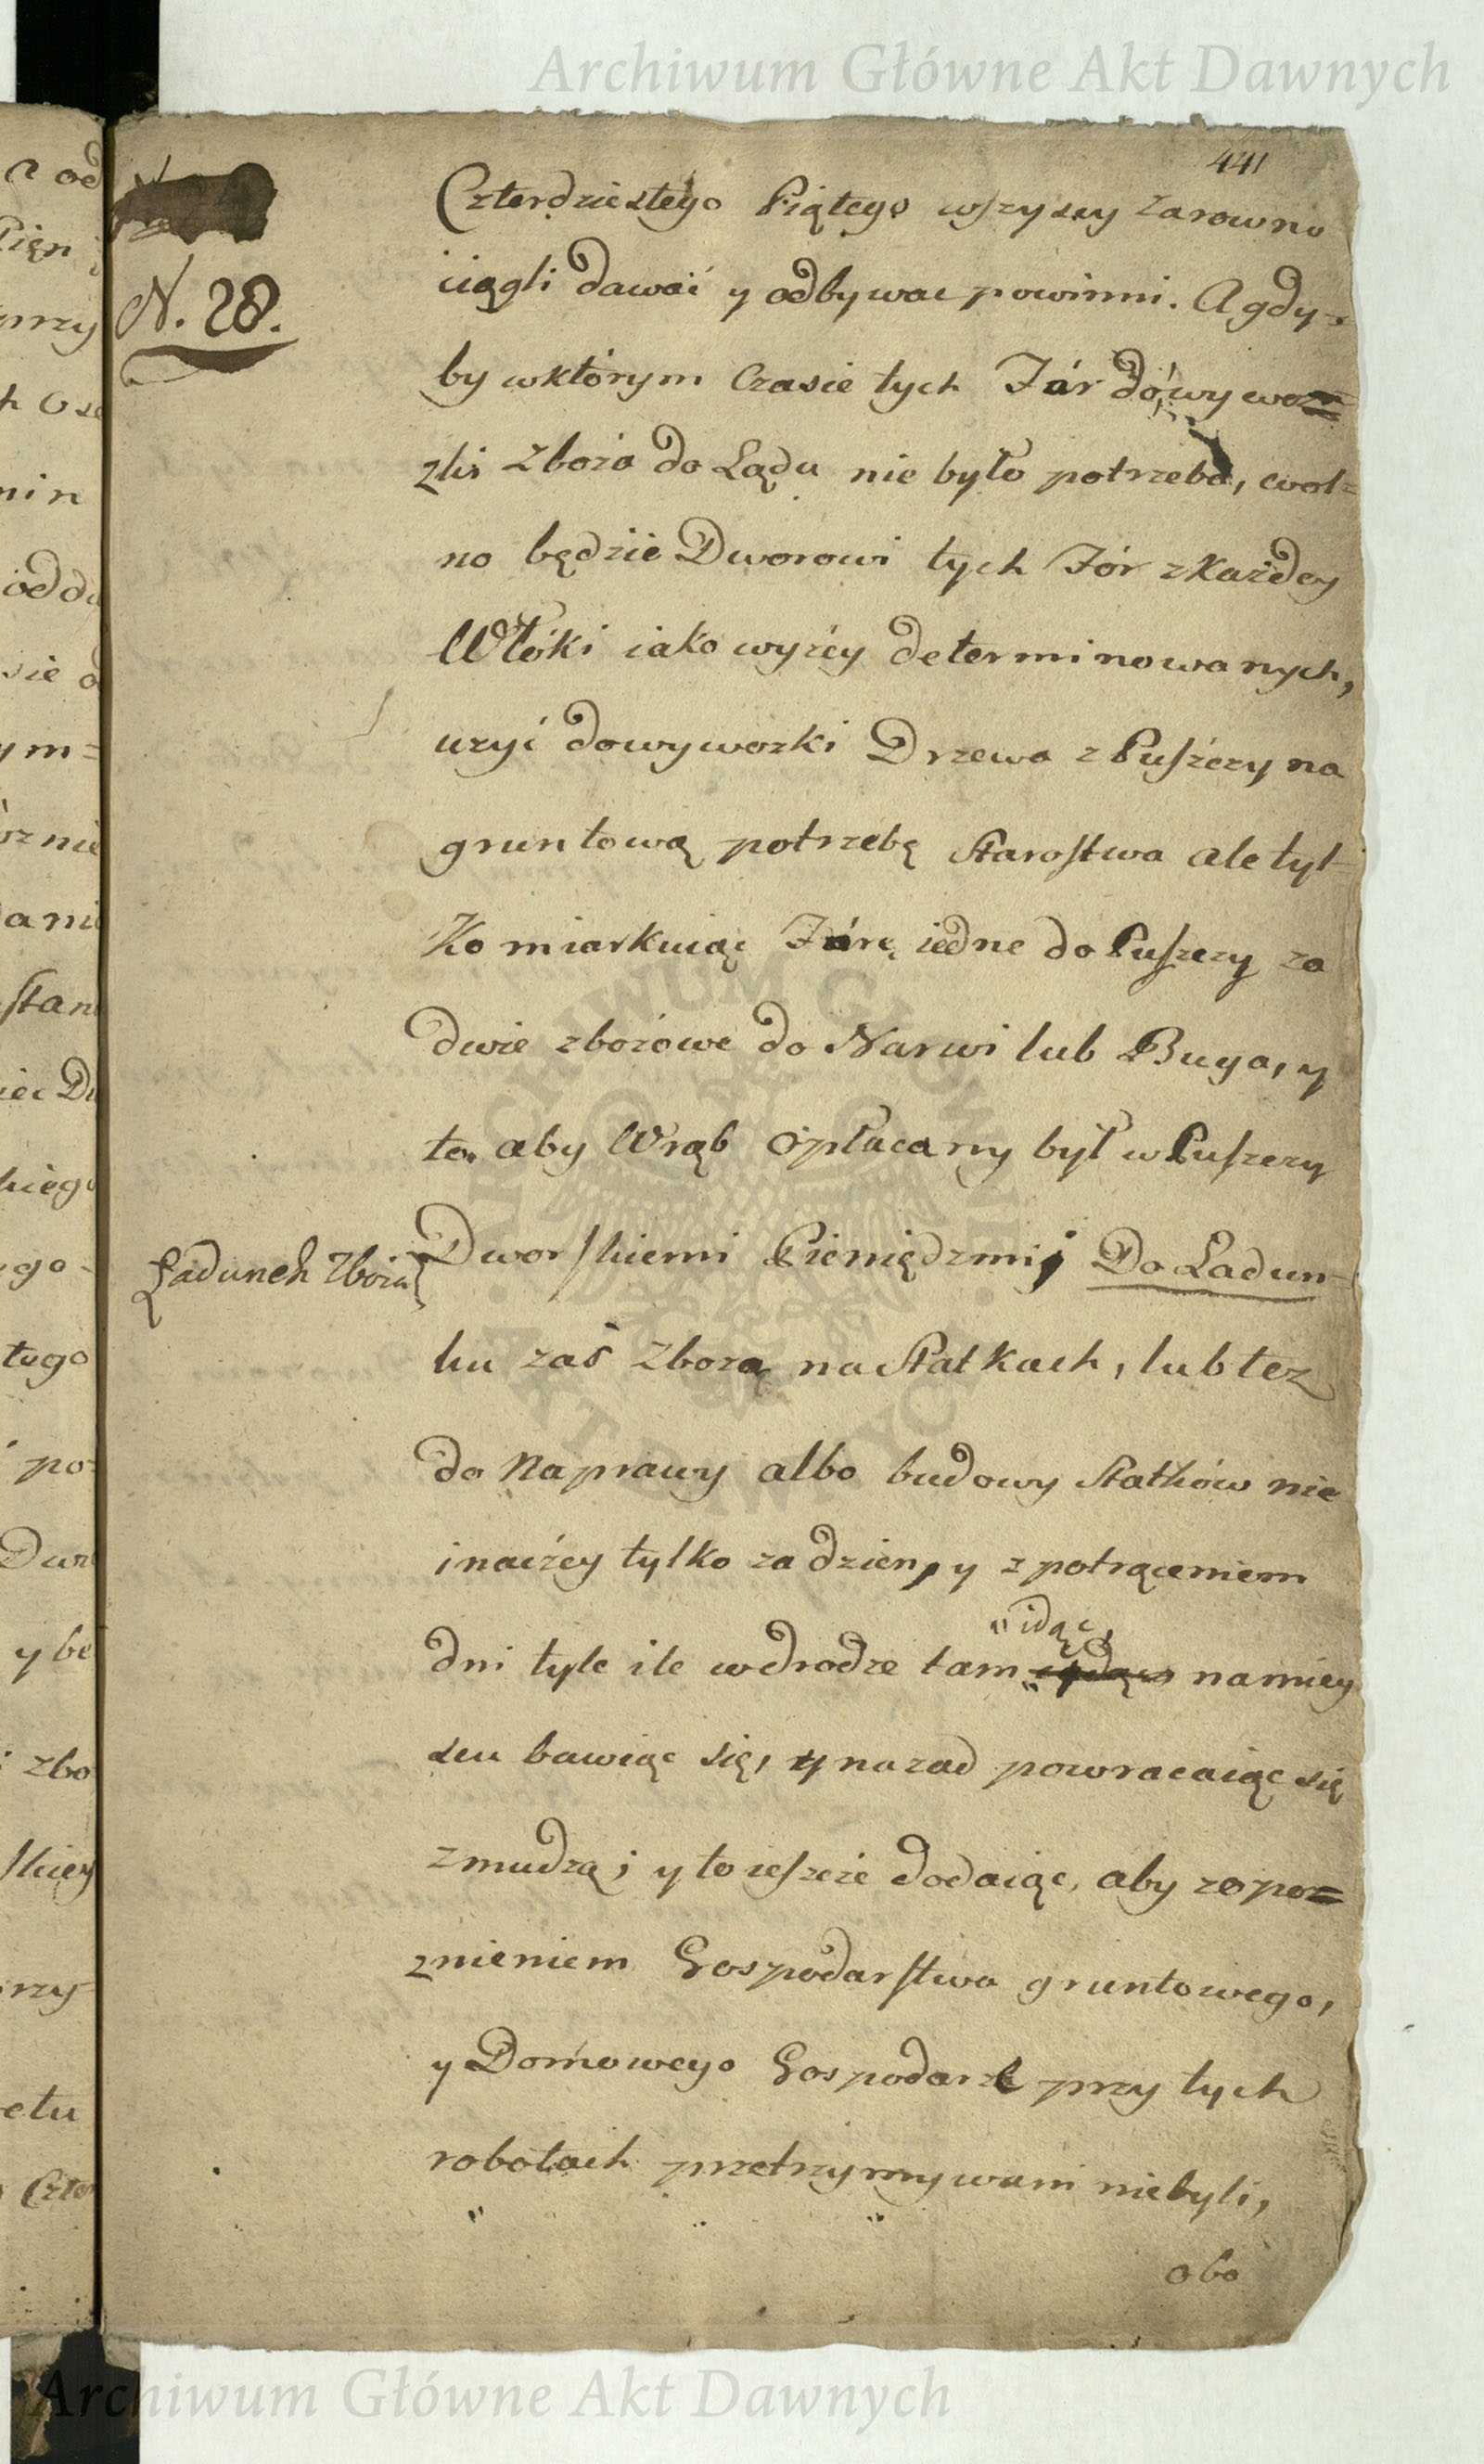 Archiwum Główne Akt Dawnych
441
N. 28.
Czterdziestego Piątego wszyscy zarowno
ciągli dawać y odbywac powinni. A gdy-
by wktórym Czasie tych Fór do wywoz=
zki zboża do Lądu nie było potrzeba, wol=
no będzie Dworowi tych Fór zkażdey
Włóki iako wyżey determinowanych,
użyć dowywozki Drzewa z Puszczy na
gruntową potrzebę Starostwa ale tyl-
ko miarkuiąc Fórę iedne do Puszczy za
dwie zbożowe do Narwi lub Buga, y
to. aby Wrąb opłacany był w Puszczy
Dworskiemi Pieniędzmi; Do Ładun-
Ładunek Zboża
ku zaś Zboża na Statkach, lub tez
do Naprawy albo budowy Statków nie
inaczey tylko za dzien, y z potrąceniem
"idąc,
dni tyle ile wdrodze tam namiey
scu bawiąc się, y nazad powracaiąc się
zmudzą; y to ieszcze dodaiąc, aby zopoz=
znieniem Gospodarstwa gruntowego,
y Domowego Gospodarze przy tych
robotach przetrzymywani niebyli,
obo
Archiwum Główne Akt Dawnych